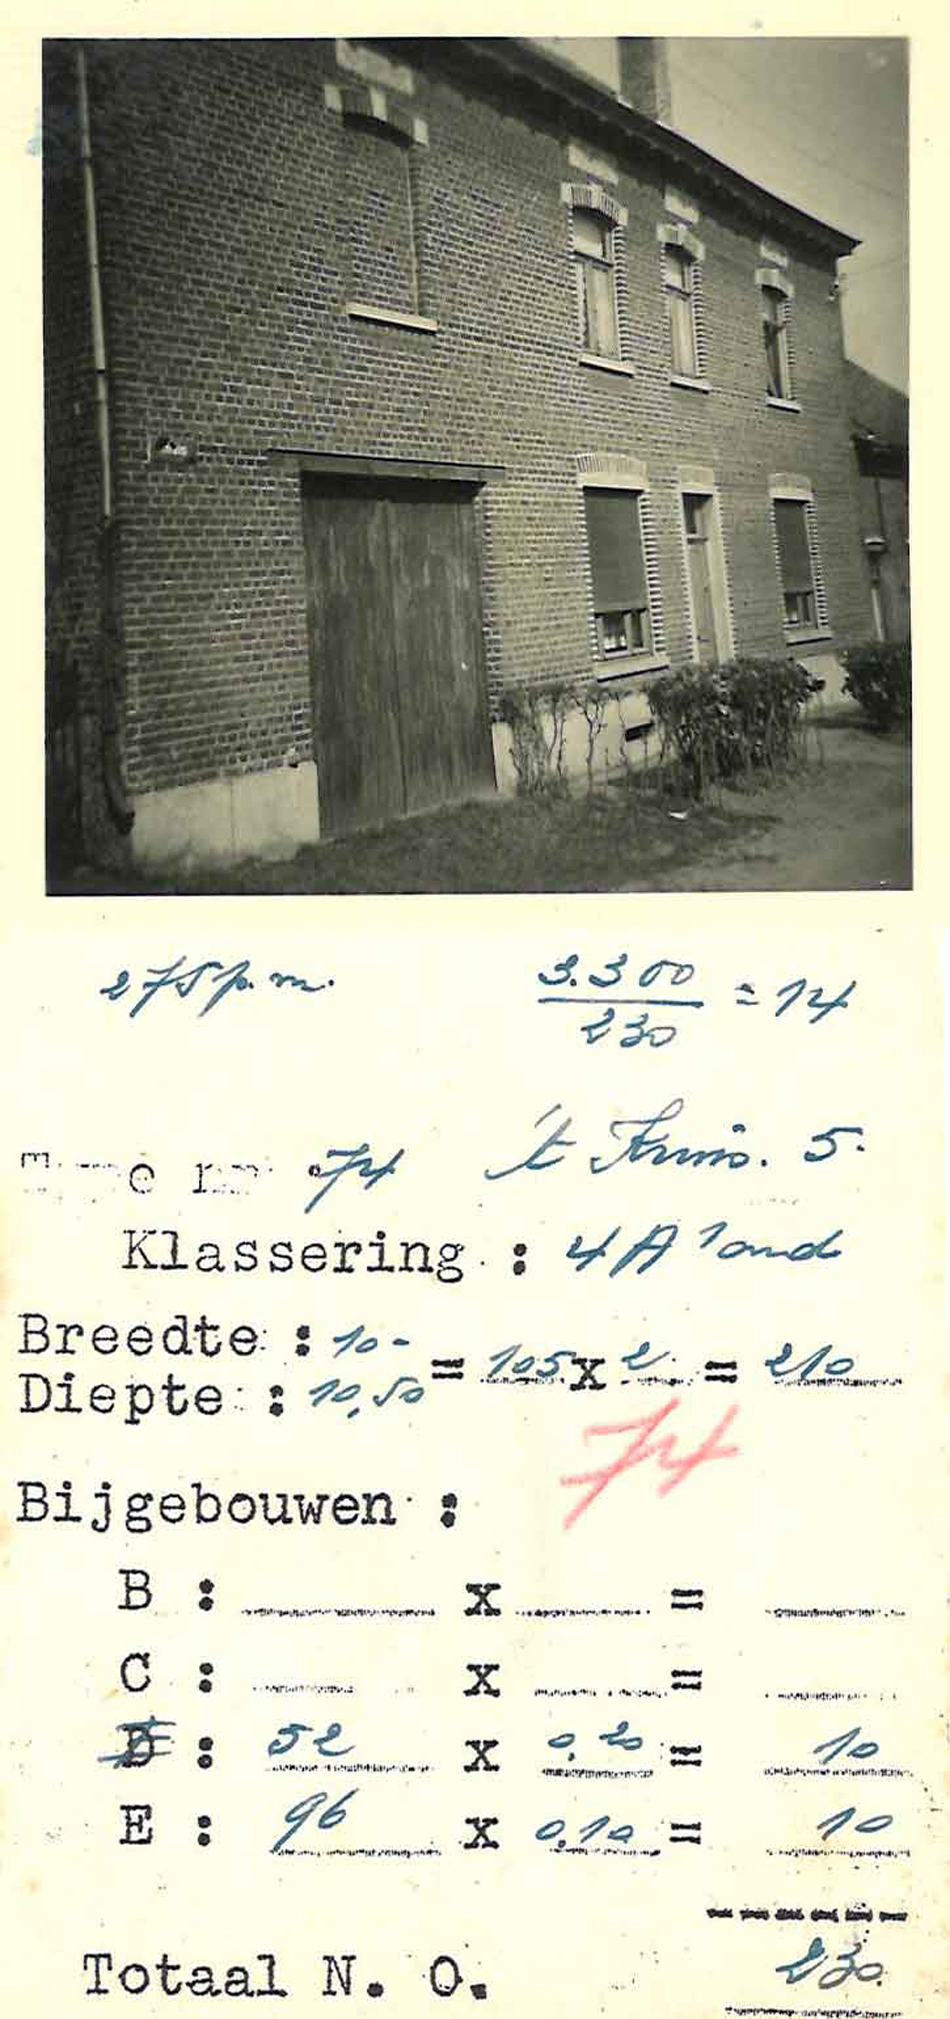 275 p.m.
3.300
230
= 14
74 't Kruis. 5.
Klassering : 4 A
Breedte : 10 -
Diepte : 10,50 = 105 x 2 = 210
74
Bijgebouwen :
B : x =
C : x =
: 52 x 0,20 = 10
E : 96 x 0,10 = 10
Totaal N. O. 230